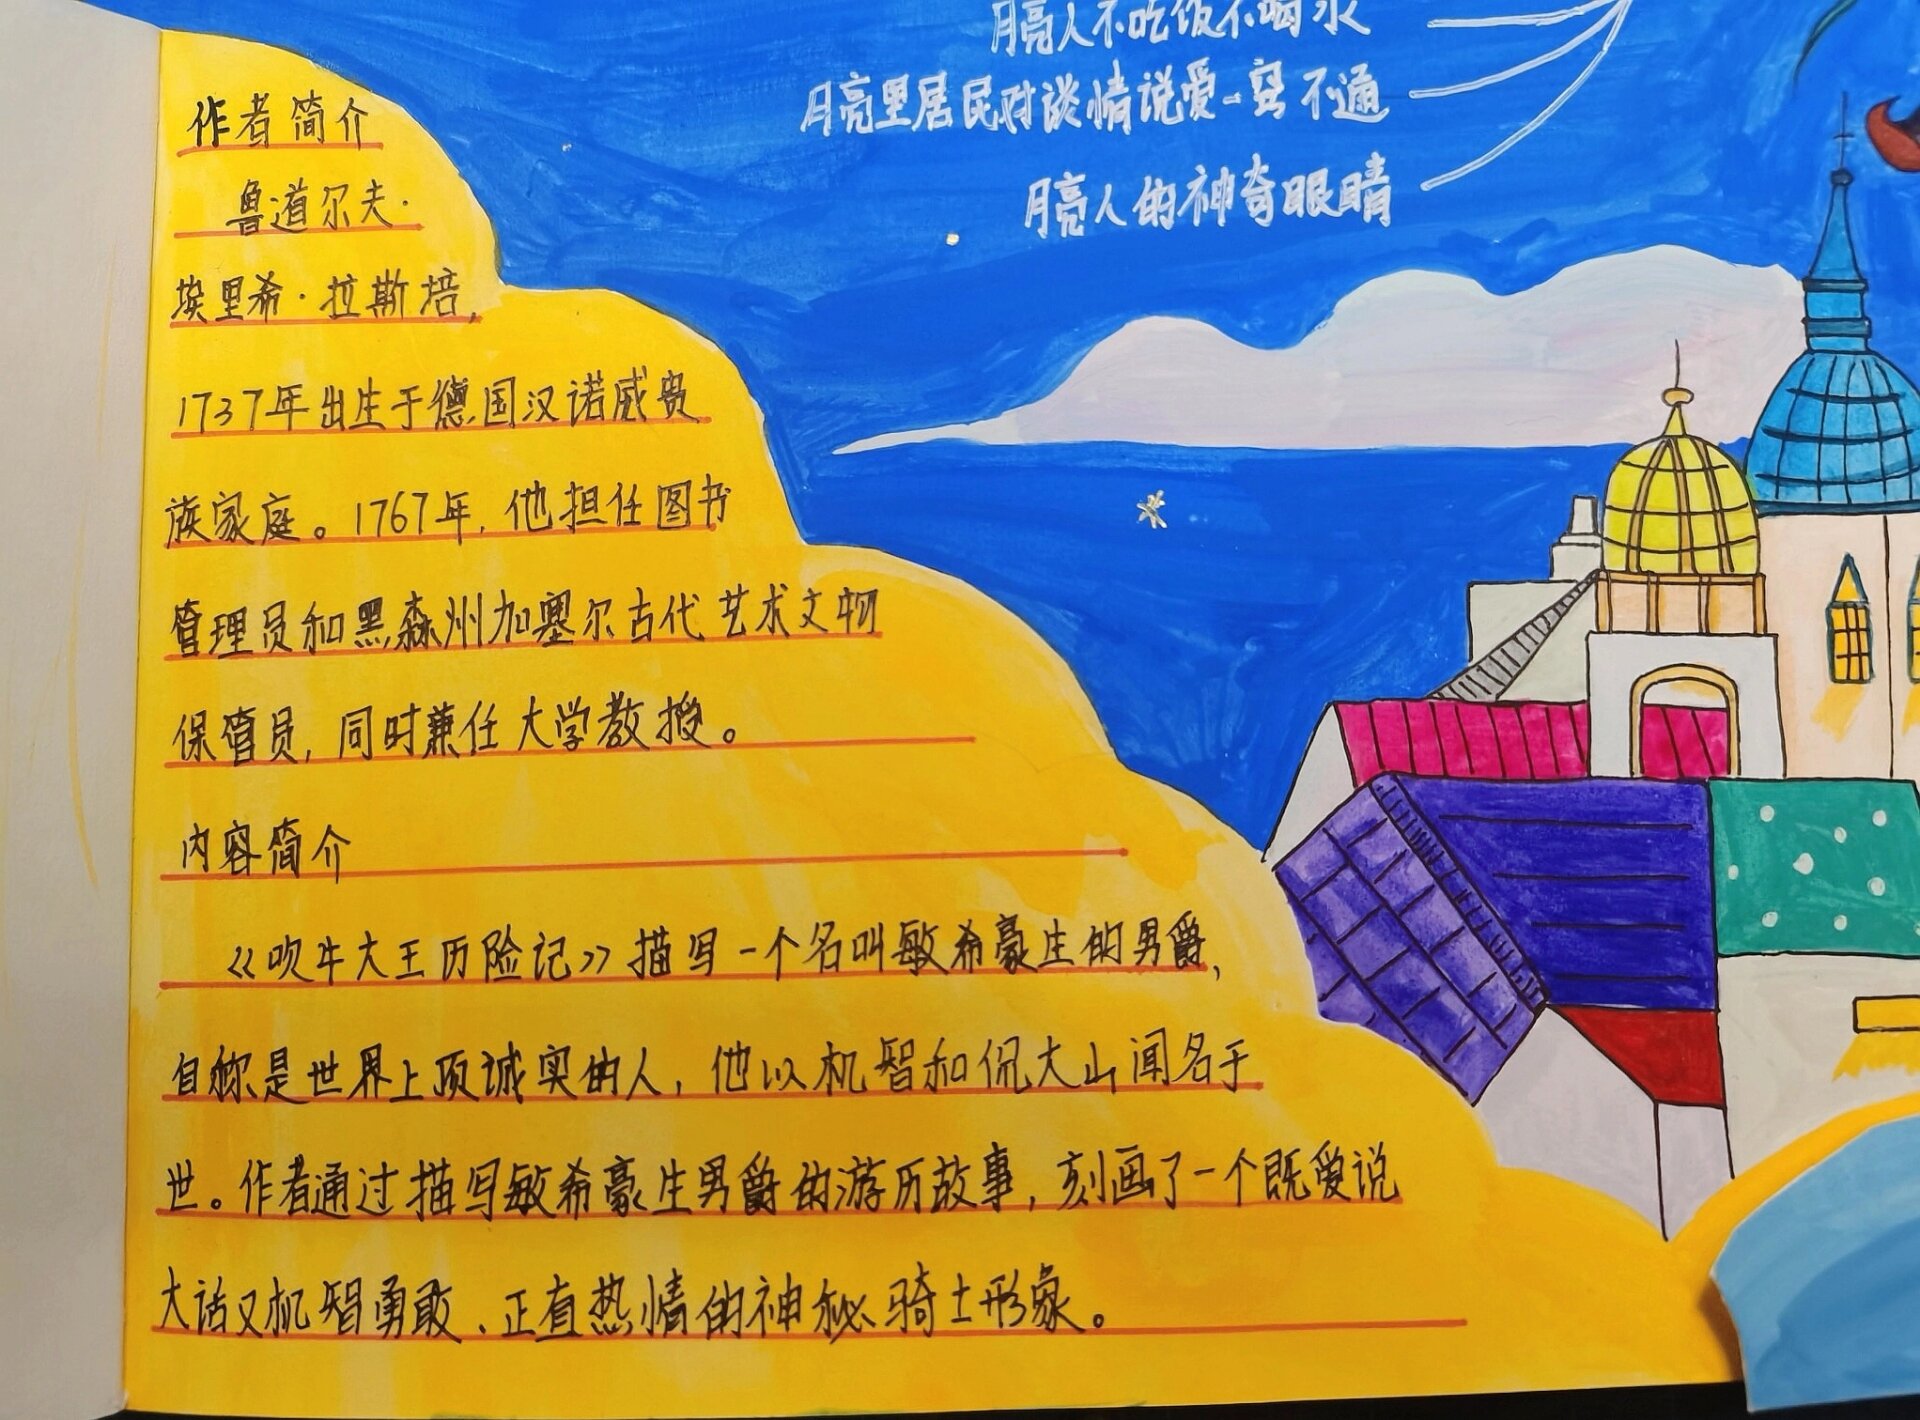 月亮人不吃饭不喝水
月亮里居民对谈情说爱一窍不通
月亮人的神奇眼睛
作者简介
鲁道尔夫·
埃里希·拉斯培,
1737年出生于德国汉诺威贵
族家庭。1767年,他担任图书
管理员和黑森州加塞尔古代艺术文物
保管员,同时兼任大学教授。
内容简介
《吹牛大王历险记》描写一个名叫敏希豪生的男爵,
自称是世界上顶诚实的人,他以机智和侃大山闻名于
世。作者通过描写敏希豪生男爵的游历故事,刻画了一个既爱说
大话又机智勇敢、正直热情的神秘骑士形象。